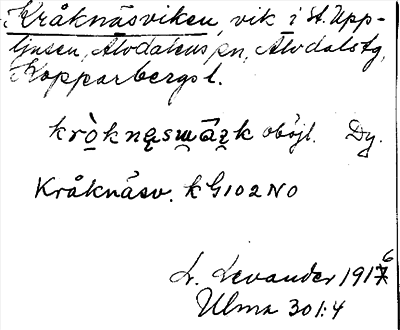 Kråknäsviken, vik i St. Upp-
ljusen, Älvdalens sn, Älvdals tg,
Kopparbergs l.
krò̱knęsw̲ā̀ʒ̨k oböjl. Dy.
Kråknäsv. k G102 NO
L. Levander 1916
Ulma 301:4